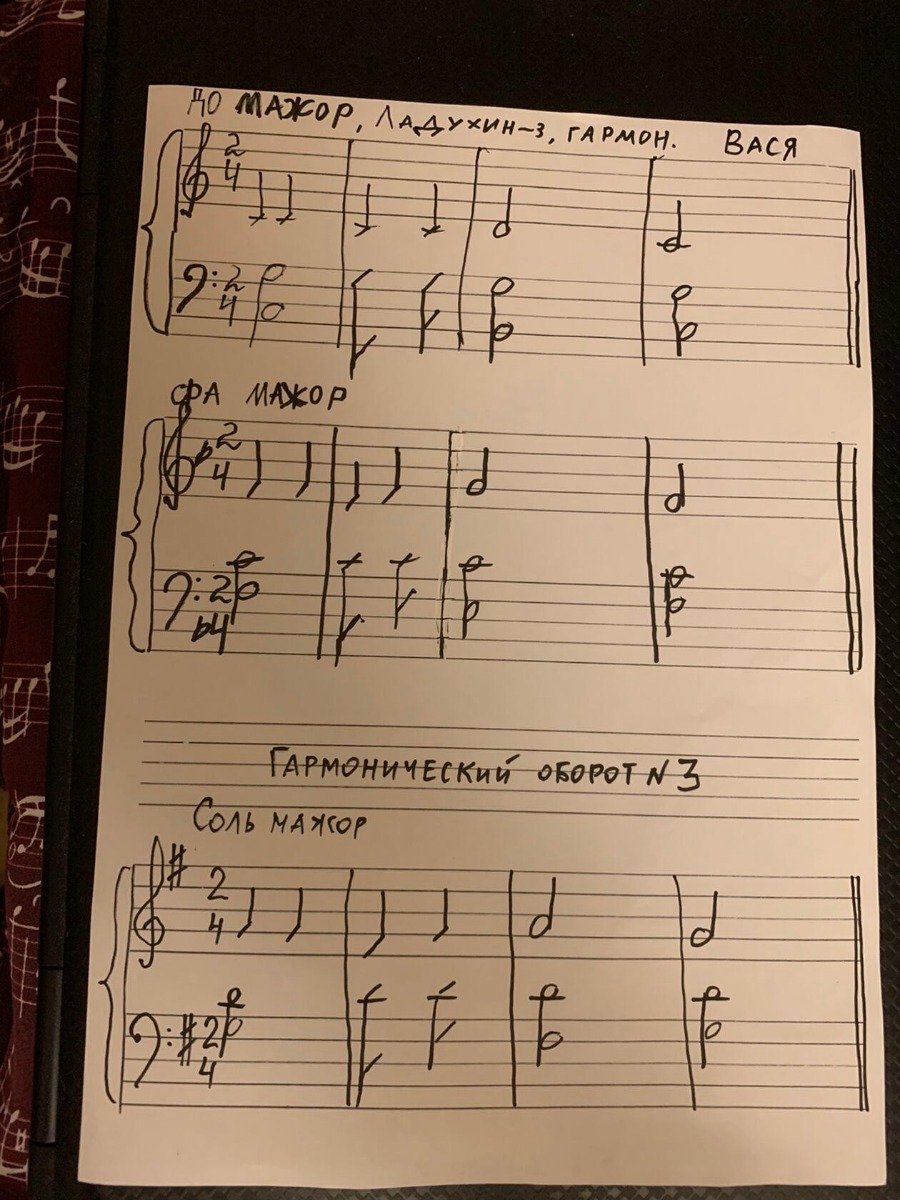 ДО МАЖОР, ЛАДУХИН-3, ГАРМОН. ВАСЯ
2
4
2
4
ФА МАЖОР
2
4
2
4
ГАРМОНИЧЕСКИЙ ОБОРОТ N 3
СОЛЬ МАЖОР
2
4
2
4